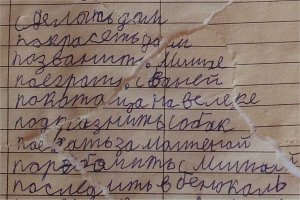 сделать дом
покрасеть дом
позванить Мите
поеграть с Ваней
поката ца на велеке
подразнить собак
поехать за матеной
пора ботать с Митой
последить в бенокаль